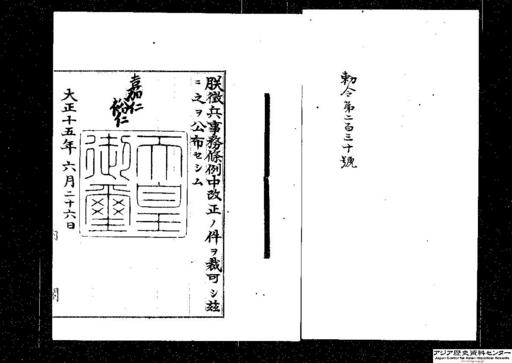 勅令第二百三十號
朕徴兵事務條例中改正ノ件ヲ裁可シ茲
ニ之ヲ公布セシム
嘉仁
裕仁
天皇
御璽
大正十五年六月二十六日
内閣
アジア歴史資料センター
Japan Center for Asian Historical Records